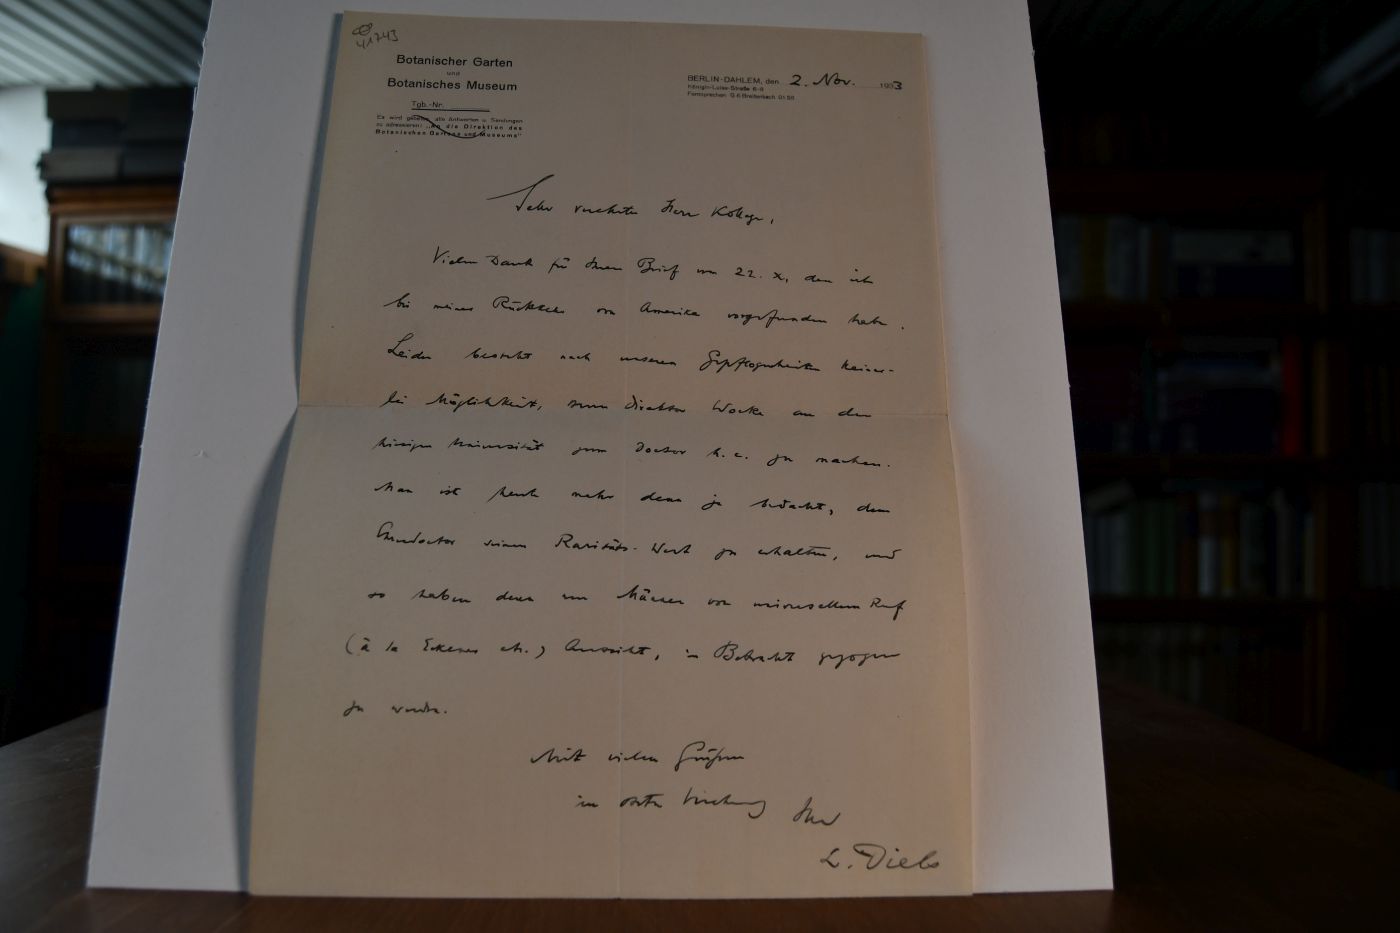 41743
Botanischer Garten
und
Botanisches Museum
Tgb.-Nr.
Es wird gebeten, alle Antworten u. Sendungen
zu adressieren: „An die Direktion des
Botanischen Gartens und Museums"
BERLIN-DAHLEM, den 2. Nov. 1933
Königin-Luise-Straße 6-8
Fernsprecher: G 6 Breitenbach 01 56
Sehr verehrter Herr Kollege,
Vielen Dank für Ihren Brief vom 22. X, den ich
bei meiner Rückkehr von Amerika vorgefunden habe.
Leider besteht nach unseren Gepflogenheiten keiner-
lei Möglichkeit, Direktor Wocke an der
hiesigen Universität zum Doctor h. c. zu machen.
Man ist heute mehr denn je bedacht, dem
Ehrendoctor seinen Raritäts-Wert zu erhalten, und
so haben denn nur Männer von universellem Ruf
(à la Eckener etc.) Aussicht, in Betracht gezogen
zu werden.
Mit vielen Grüßen
in Ihr
L. Diels